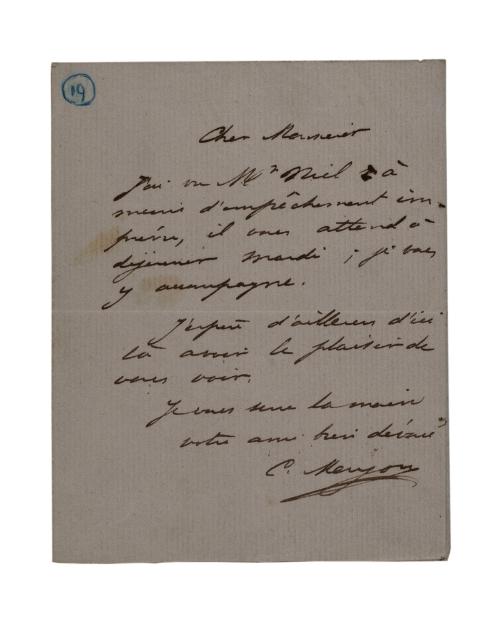 19
Cher Monsieur
J'ai vu Mr Niel & à
moins d'empêchement im-
prévu, il vous attend à
déjeuner mardi ; je vous
y accompagne.
J'espère d'ailleurs d'ici
là avoir le plaisir de
vous voir.
Je vous serre la main
votre ami bien dévoué
C. Meryon